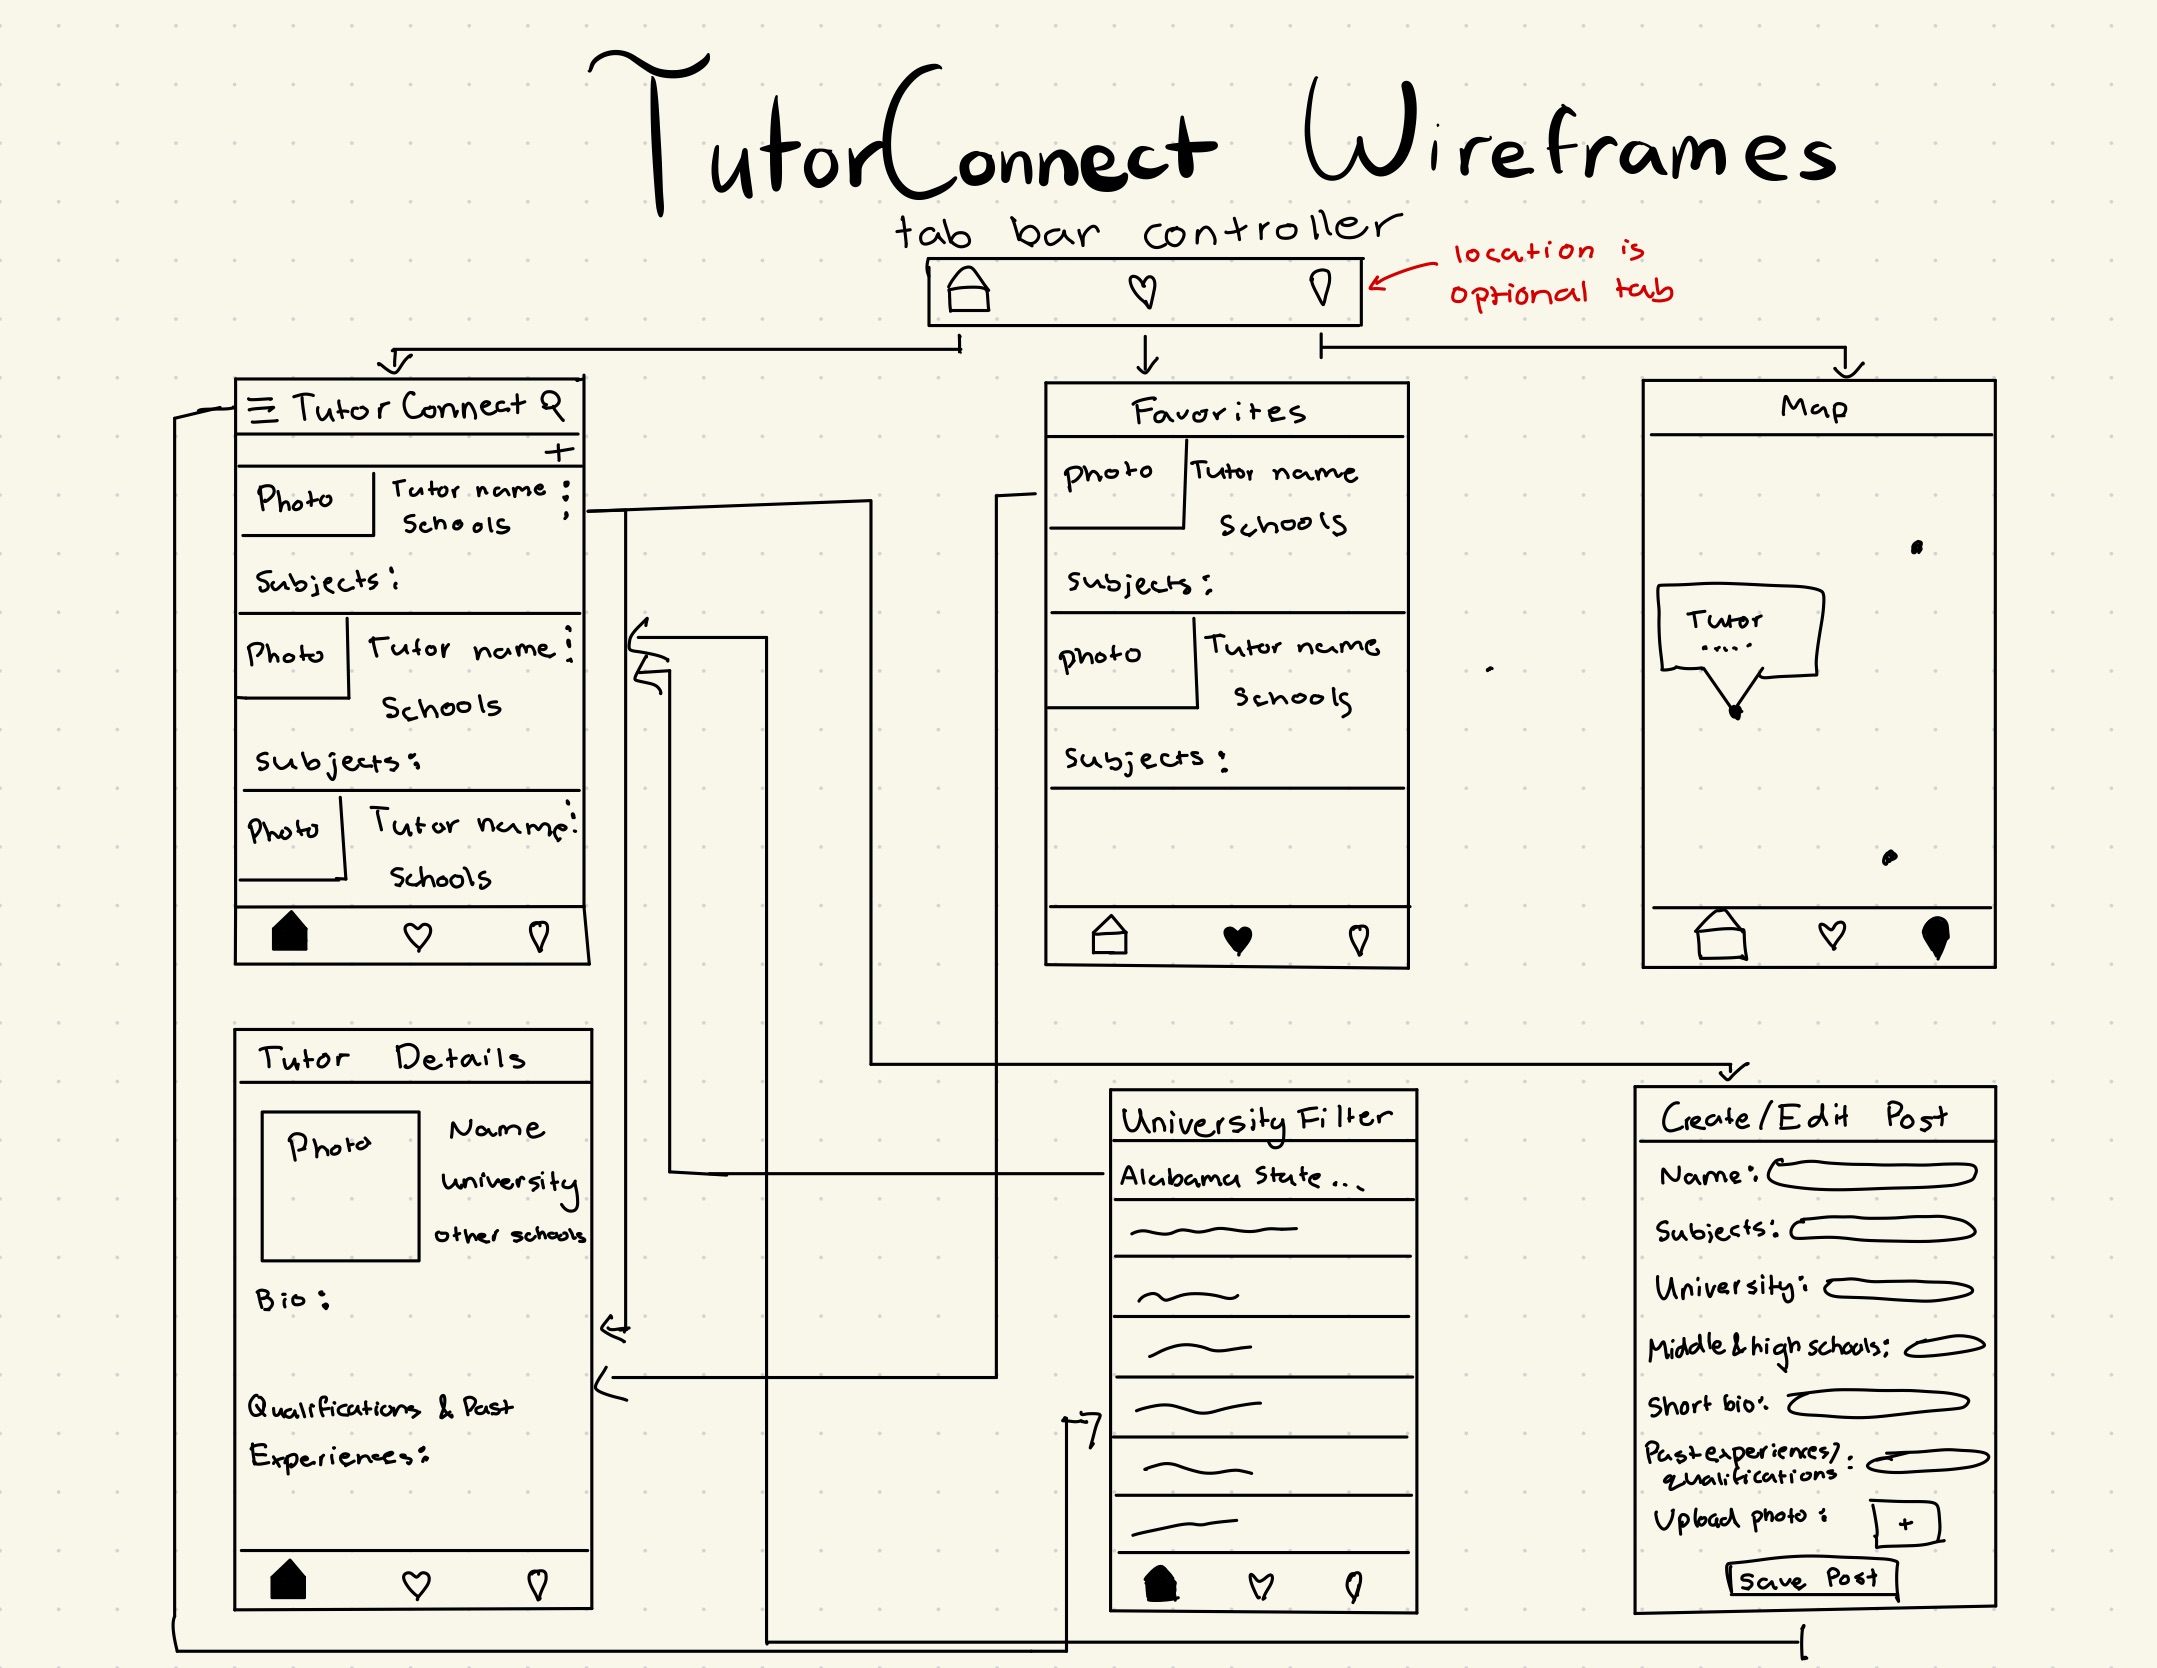 TutorConnect Wireframes
tab bar controller
location is
optional tab
TutorConnect
+
Photo
Tutor name
Schools
Subjects:
Photo
Tutor name
Schools
Subjects:
Photo
Tutor name
Schools
Favorites
photo
Tutor name
Schools
Subjects:
photo
Tutor name
Schools
Subjects:
Map
Tutor
....
Tutor Details
Photo
Name
University
other schools
Bio:
Qualifications & Past
Experiences:
University Filter
Alabama State...
Create/Edit Post
Name:
Subjects:
University:
Middle & high schools:
Short bio:
Past experiences/
qualifications:
Upload photo:
+
Save Post